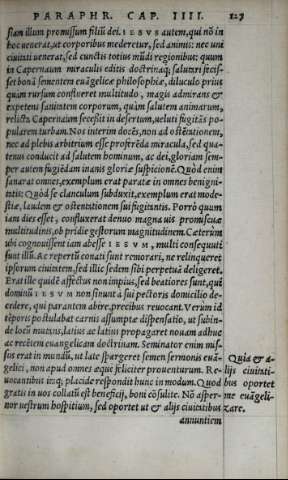 PARAPHR. CAP. IIII. 127
siam illum promissum filiū dei. IESVS autem, qui nō in
hoc uenerat, ut corporibus mederetur, sed animis: nec uni
ciuitati uenerat, sed cunctis totius mūdi regionibus: quum
in Capernaum miraculis editis doctrinaq; salutari fecis-
set bonā sementem euāgelicæ philosophiæ, diluculo prius
quàm rursum conflueret multitudo, magis admirans &
expetens sanantem corporum, quàm salutem animarum,
relicta Capernaum secessit in desertum, ueluti fugitās po-
pularem turbam. Nos interim docēs, non ad ostētationem,
nec ad plebis arbitrium esse proferēda miracula, sed qua-
tenus conducit ad salutem hominum, ac dei, gloriam sem-
per autem fugiēdam inanis gloriæ suspicionē. Quòd enim
sanarat omnes, exemplum erat paratæ in omnes benigni-
tatis: Quòd se clanculum subduxit, exemplum erat mode-
stiæ, laudem & ostentationem suffugitantis. Porrò quum
iam dies esset, confluxerat denuo magna uis promiscuæ
multitudinis, ob pridie gestorum magnitudinem. Cæterùm
ubi cognouissent iam abesse IESVM, multi consequuti
sunt illū. Ac repertū conati sunt remorari, ne relinqueret
ipsorum ciuitatem, sed illic sedem sibi perpetuā deligeret.
Erat ille quidē affectus non impius, sed beatiores sunt, qui
dominū IESVM non sinunt à sui pectoris domicilio de-
cedere, qui parantem abire, precibus reuocant. Verùm id
tēporis postulabat carnis assumptæ dispensatio, ut subin-
de locū mutans, latius ac latius propagaret nouam adhuc
ac recētem euangelicam doctrinam. Seminator enim mis-
sus erat in mundū, ut latè spargeret semen sermonis euā-
gelici, non apud omnes æque feliciter prouenturum. Re-
uocantibus inq; placidè respondit hunc in modum. Quod
gratis in uos collatū est beneficij, boni cōsulite. Nō asper-
nor uestrum hospitium, sed oportet ut & alijs ciuitatibus
annuntiem
Quia & a-
lijs ciuitati-
bus oportet
me euāgeli-
zare.